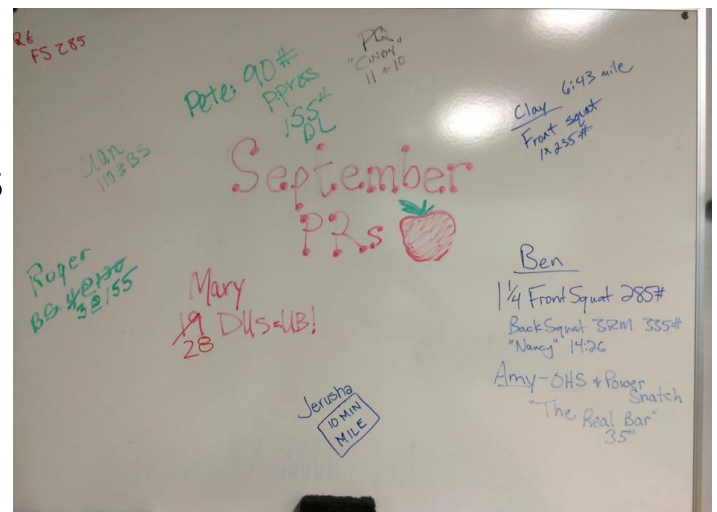 FS 285
Pete: 90#
p.press
155#
DL
PR
"CINDY"
11 + 10
Clay 6:43 mile
Front squat
1x 235#
110# BS
September
PRs
Roger
3@155
Mary
19 DUs UB!
28
Ben
1 1/4 Front Squat 285#
Back Squat 3RM 335#
"Nancy" 14:26
Amy - OHS & Power
Snatch
"The Real Bar"
35#
Jerusha
10 MIN
MILE